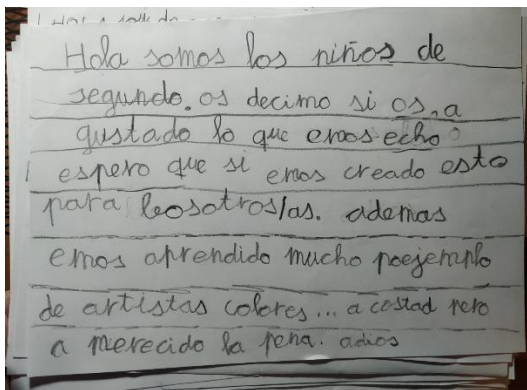 Hola somos los niños de
segundo. os decimo si os a
gustado lo que emos echo
espero que si emos creado esto
para bosotros/as. ademas
emos aprendido mucho poejemplo
de artistas colores... a costad pero
a merecido la pena. adios